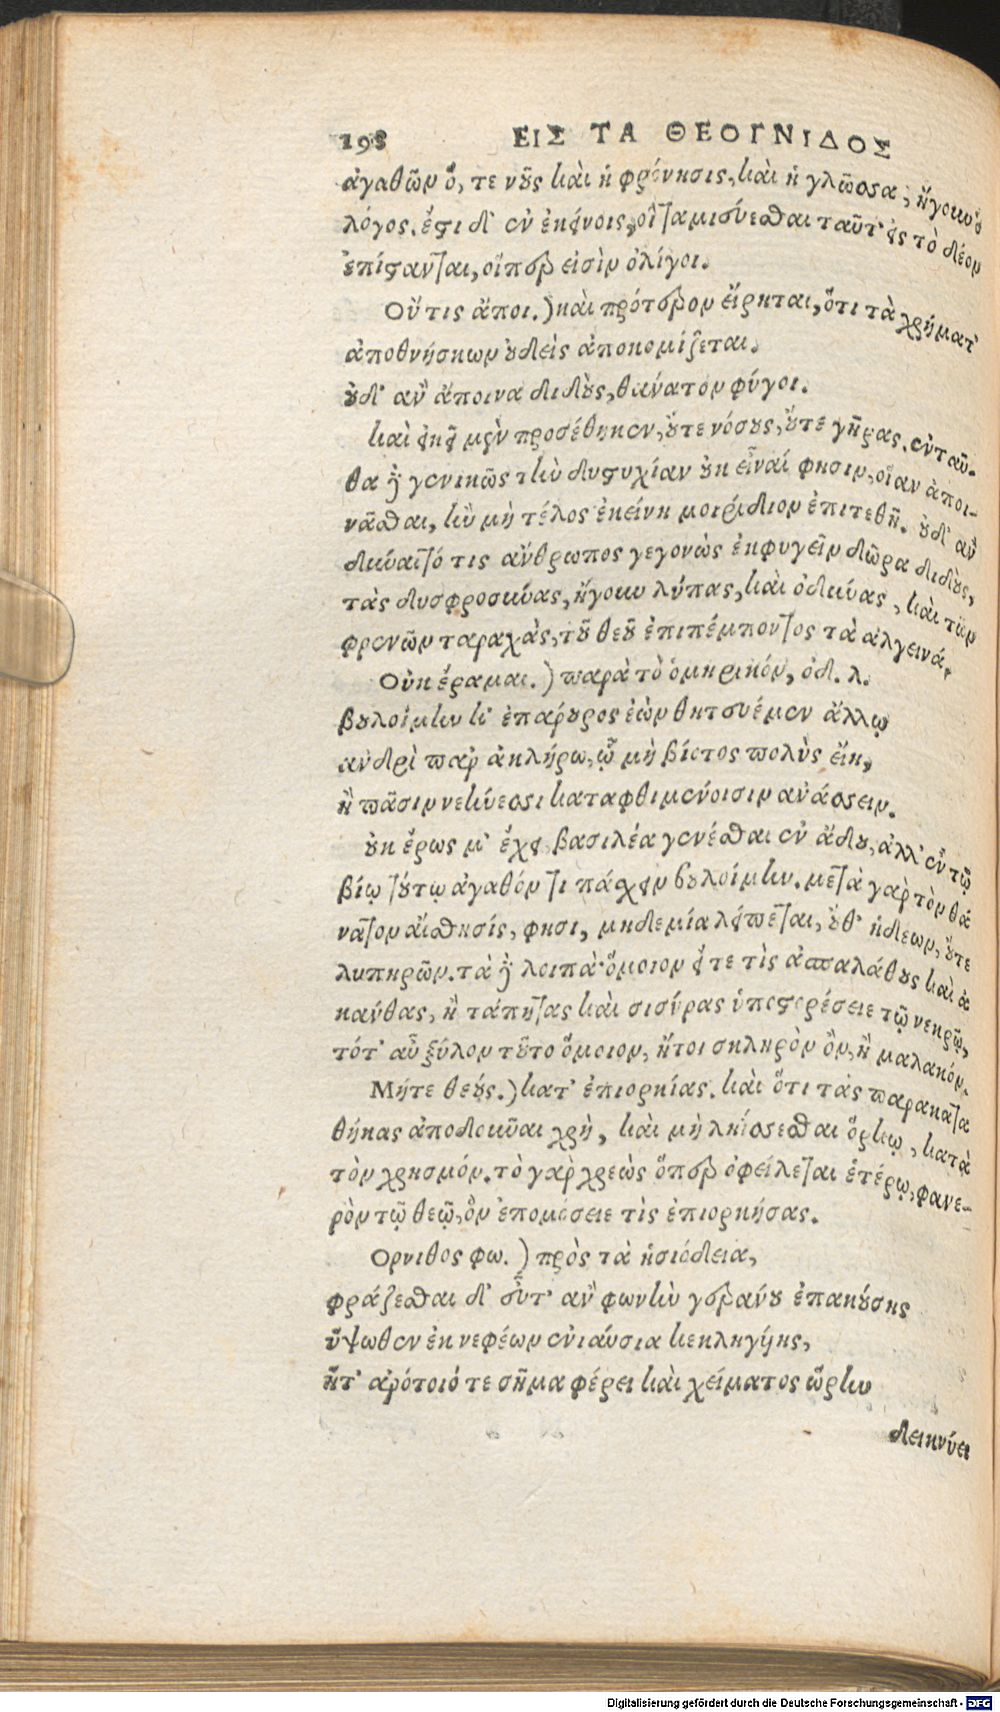 198 ΕΙΣ ΤΑ ΘΕΟΓΝΙΔΟΣ
ἀγαθῶν ὅ, τε νοῦς καὶ ἡ φρόνησις, καὶ ἡ γλῶσσα, ἤγουν ὁ
λόγος. ἔστι δ' ἐν ἐκείνοις, οἳ ταμιεύεσθαι ταῦτ' εἰς τὸ δέον
ἐπίστανται, οἵπερ εἰσὶν ὀλίγοι.
Οὔτις ἄποι.) καὶ πρότερον εἴρηται, ὅτι τὰ χρήματ'
ἀποθνήσκων οὐδεὶς ἀποκομίζεται.
οὐδ' ἂν ἄποινα διδοὺς, θάνατον φύγοι.
καὶ ἐκεῖ μὲν προσέθηκεν, οὔτε νόσους, οὔτε γῆρας. ἐνταῦ-
θα δὲ γενικῶς τὴν δυστυχίαν οὐκ εἶναί φησιν, οἵαν ἀποι-
νᾶσθαι, ἢν μὴ τέλος ἐκείνη μοιρίδιον ἐπιτεθῇ. οὐδ' ἂν
δύναιτό τις ἄνθρωπος γεγονὼς ἐκφυγεῖν δῶρα διδοὺς,
τὰς δυσφροσύνας, ἤγουν λύπας, καὶ ὀδύνας, καὶ τῶν
φρενῶν ταραχὰς, τοῦ θεοῦ ἐπιπέμποντος τὰ ἀλγεινά.
Οὐκ ἔραμαι.) παρὰ τὸ ὁμηρικόν, ὀδ. λ.
βουλοίμην κ' ἐπάρουρος ἐὼν θητευέμεν ἄλλῳ
ἀνδρὶ παρ' ἀκλήρῳ, ᾧ μὴ βίοτος πολὺς εἴη,
ἢ πᾶσιν νεκύεσσι καταφθιμένοισιν ἀνάσσειν.
οὐκ ἔρως μ' ἔχει βασιλέα γενέσθαι ἐν ᾅδου, ἀλλ' ἐν τῷ
βίῳ τούτῳ ἀγαθόν τι πάσχειν βουλοίμην. μετὰ γὰρ τὸν θά
νατον αἴσθησίς, φησι, μηδεμία λείπεται, οὔθ' ἡδέων, οὔτε
λυπηρῶν. τὰ δὲ λοιπὰ· ὅμοιον εἴτε τὶς ἀσπαλάθους καὶ ἀ
κάνθας, ἢ τάπητας καὶ σισύρας ὑποστορέσειε τῷ νεκρῷ,
τότ' αὖ ξύλον τοῦτο ὅμοιον, ἤτοι σκληρὸν ὂν, ἢ μαλακόν.
Μήτε θεούς.) κατ' ἐπιορκίας. καὶ ὅτι τὰς παρακατα
θήκας ἀποδοῦναι χρὴ, καὶ μὴ λῄσσεσθαι ὅρκῳ, κατὰ
τὸν χρησμόν. τὸ γὰρ χρεὼς ὅπερ ὀφείλεται ἑτέρῳ, φανε-
ρὸν τῷ θεῷ, ὃν ἐπομόσειε τὶς ἐπιορκήσας.
Ορνιθος φω.) πρὸς τὰ ἡσιόδεια,
φράζεσθαι δ' εὖτ' ἂν φωνὴν γεράνου ἐπακούσῃς
ὕψοθεν ἐκ νεφέων ἐνιαύσια κεκληγυίης,
ἥτ' ἀρότοιό τε σῆμα φέρει καὶ χείματος ὥρην
δεικνύει
Digitalisierung gefördert durch die Deutsche Forschungsgemeinschaft - DFG